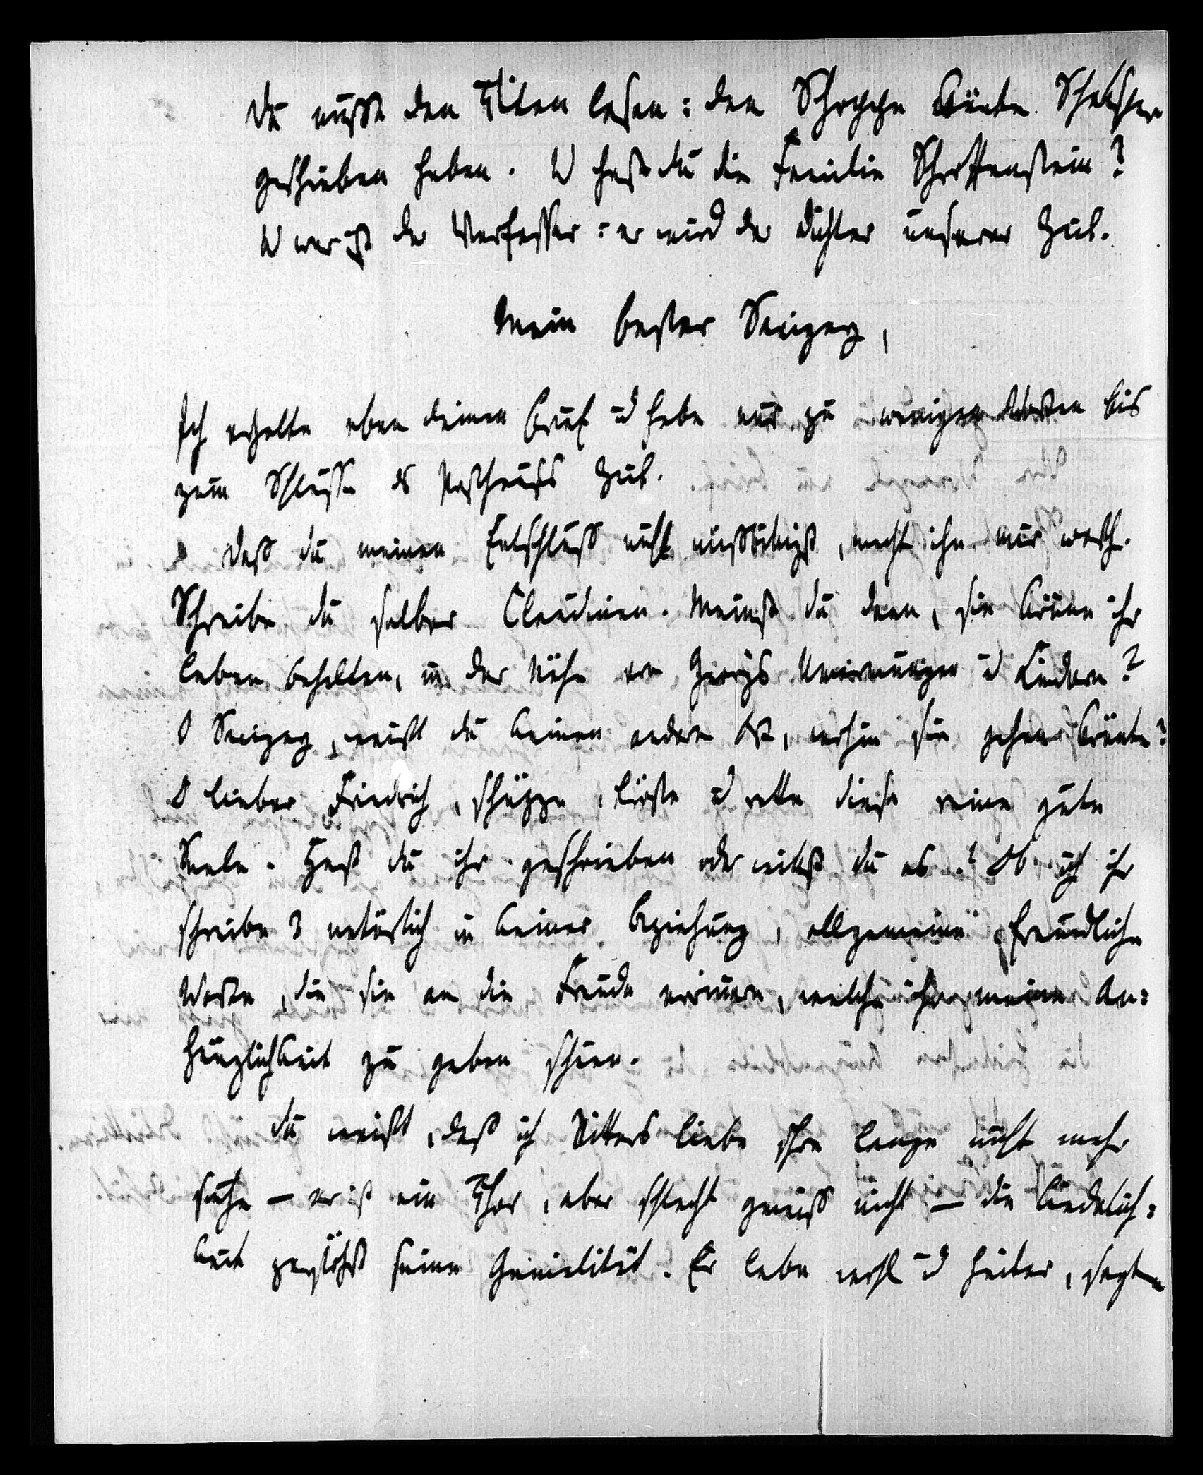 Du mußt den Titan lesen: den Schoppe könnte Shakspear
geschrieben haben. U hast du die Familie Schroffenstein?
U wer ist der Verfasser: er wird der Dichter unserer Zeit.
Mein bester Savigny,
Ich erhalte eben deinen Brief ud habe nur zu wenigen Worten bis
zum Schlusse ds Posthauses Zeit.
Daß du meinen Entschluß nicht mißbilligst, macht ihn mir werth.
Schreibe du selber Claudinen. Meinst du denn, sie könne ihr
Leben behalten, in der Nähe von ud Kindern?
O Savigny, weißt du keinen andern Ort, wohin sie gehen könnte?
O lieber Friedrich, schüzze, tröste ud rette diese reine gute
Seele. Hast du ihr geschrieben oder willst du es? Ob ich ihr
schreibe? natürlich in keiner Beziehung, allgemeine freundliche
Worte, die sie an die Freude erinnern, welche ihr meine An=
hänglichkeit zu geben schien.
Du weißt, daß ich Ritters Liebe schon lange nicht mehr
suche – er ist ein Thor, aber schlecht gewiß nicht – die Liederlich=
keit zerstöhrt seine Genialität. Er lebe wohl ud heiter, sagte